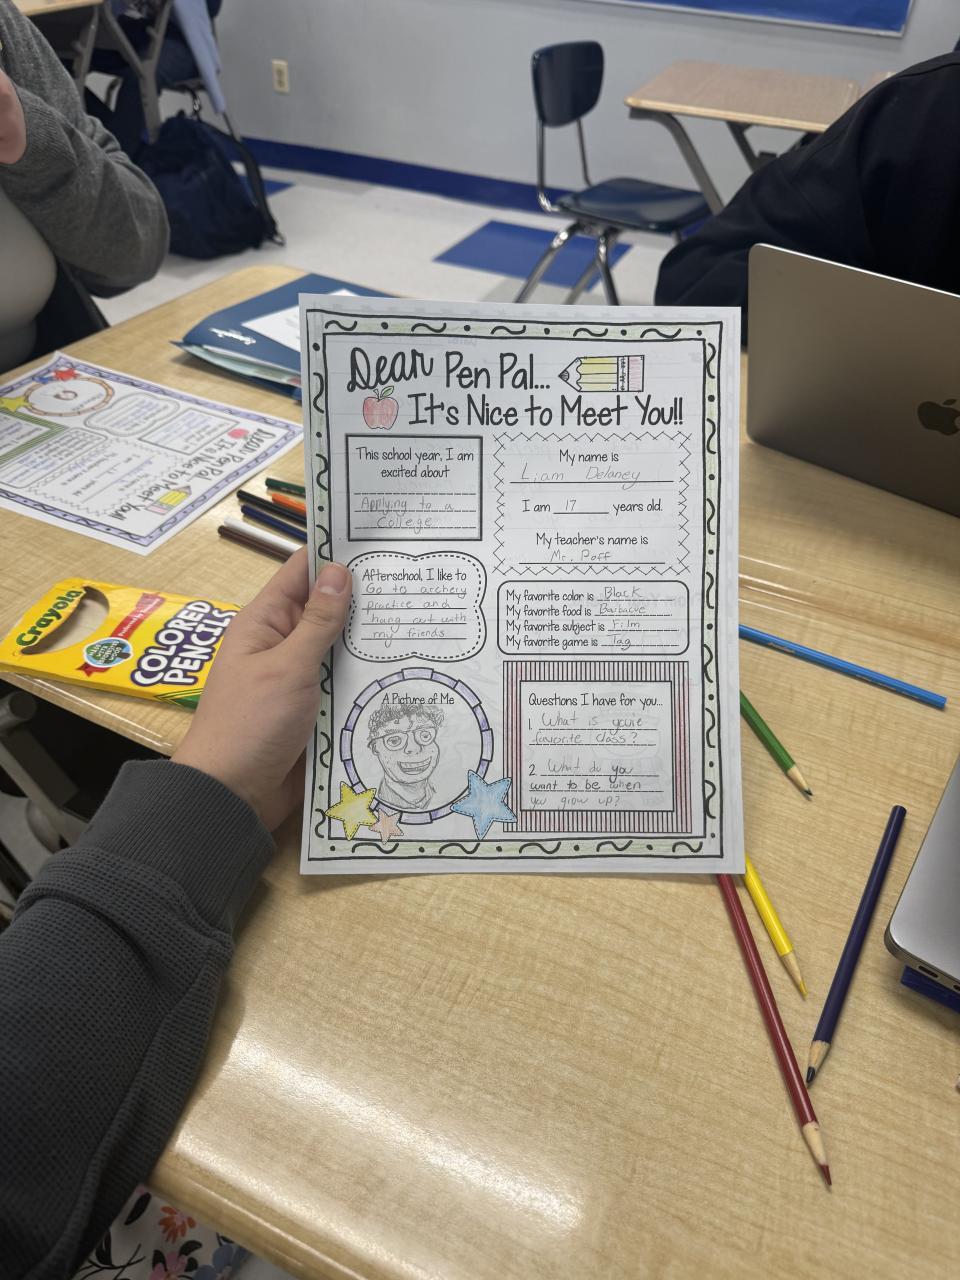 Dear Pen Pal...
It's Nice to Meet You!!
This school year, I am
excited about
Applying to a
College
My name is
Liam Delaney
I am 17 years old.
My teacher's name is
Mr. Poff
Afterschool, I like to
Go to archery
practice and
hang out with
my friends
My favorite color is Black
My favorite food is Barbacue
My favorite subject is Film
My favorite game is Tag
A Picture of Me
Questions I have for you...
1. What is youre
favorite class?
2. What do you
want to be when
you grow up?
Crayola
COLORED
PENCILS
Dear Pen Pal
It's Nice to Meet You!!